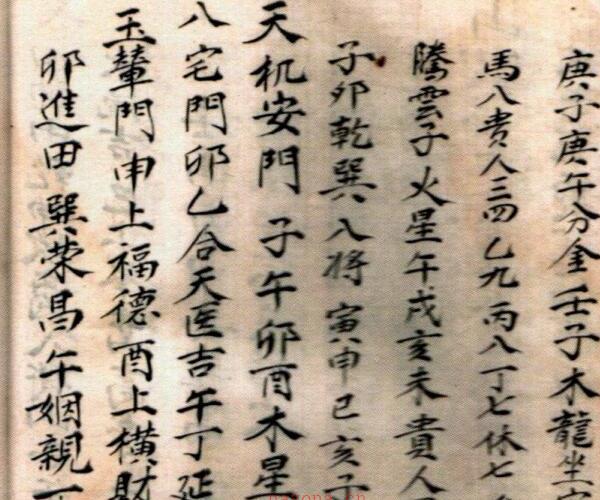 庚子庚午分金壬子木龍坐
馬八貴人三四乙九丙八丁七休七
騰雲子火星午戌亥未貴人
子卯乾巽八將寅申巳亥子
天机安門子午卯酉木星
八宅門卯乙合天医吉午丁延
玉輦門申上福德酉上橫財
卯進田巽荣昌午姻親